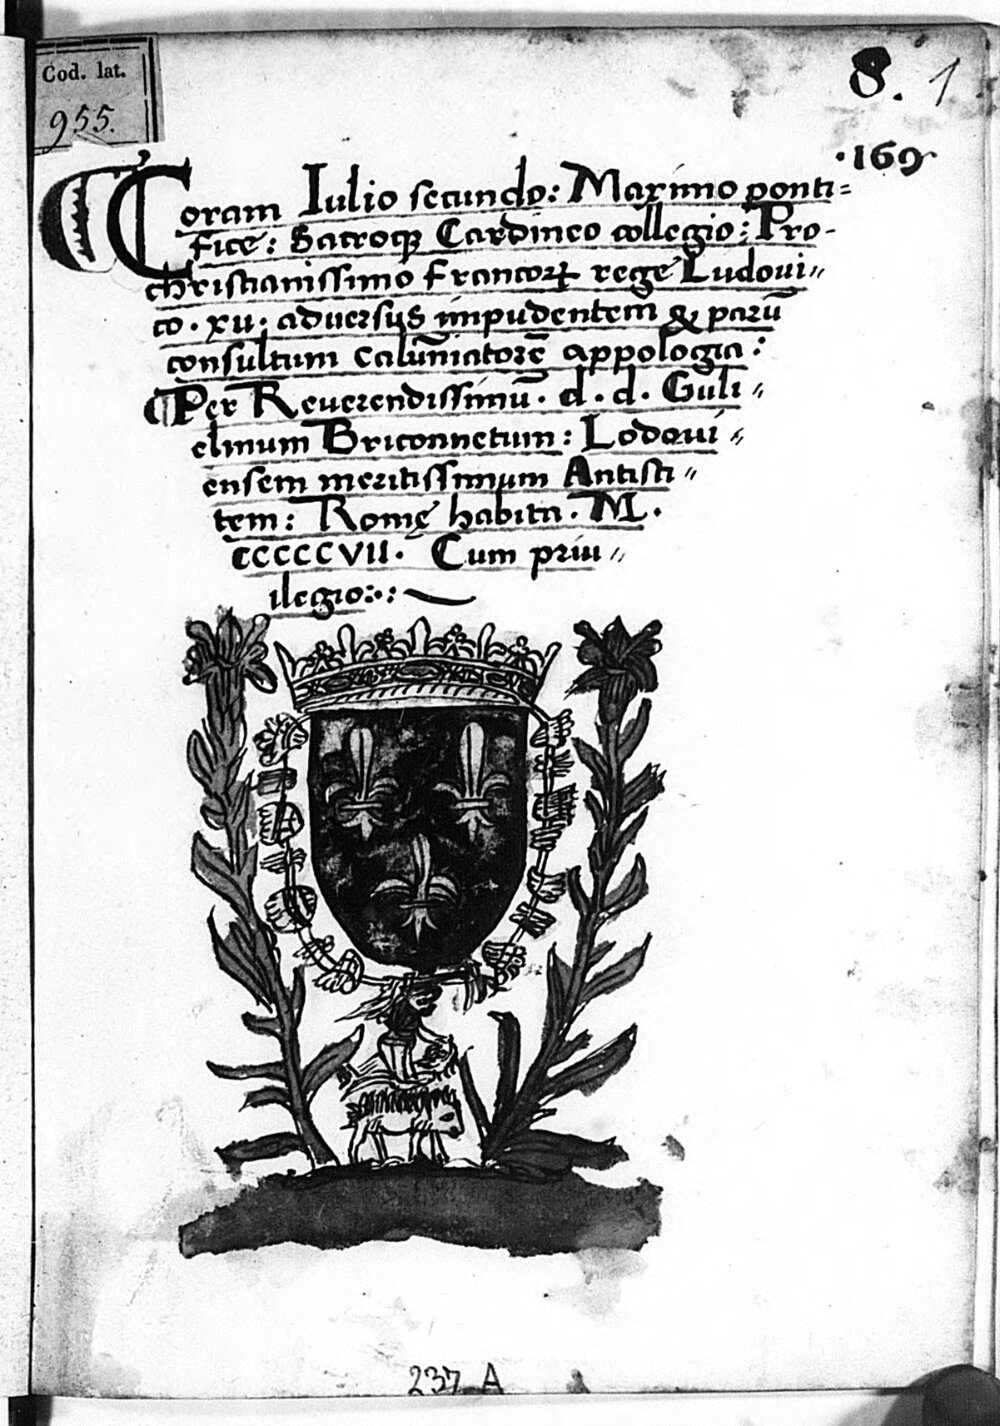 Cod. lat.
955.
8. 1
·169
Coram Iulio secundo: Maximo ponti=
fice: Sacroqꝫ Cardineo collegio: Pro-
christianissimo francoꝝ rege Ludoui〃
co · xii · aduersus impudentem & parū
consultum calūniatorē appologia:
¶Per Reuerendissimū · d · d · Guli〃
elmum Briconnetum: Lodoui〃
ensem meritissimum Antisti〃
tem: Romę habita · M ·
CCCCCVII · Cum priu〃
ilegio:·:
237 A